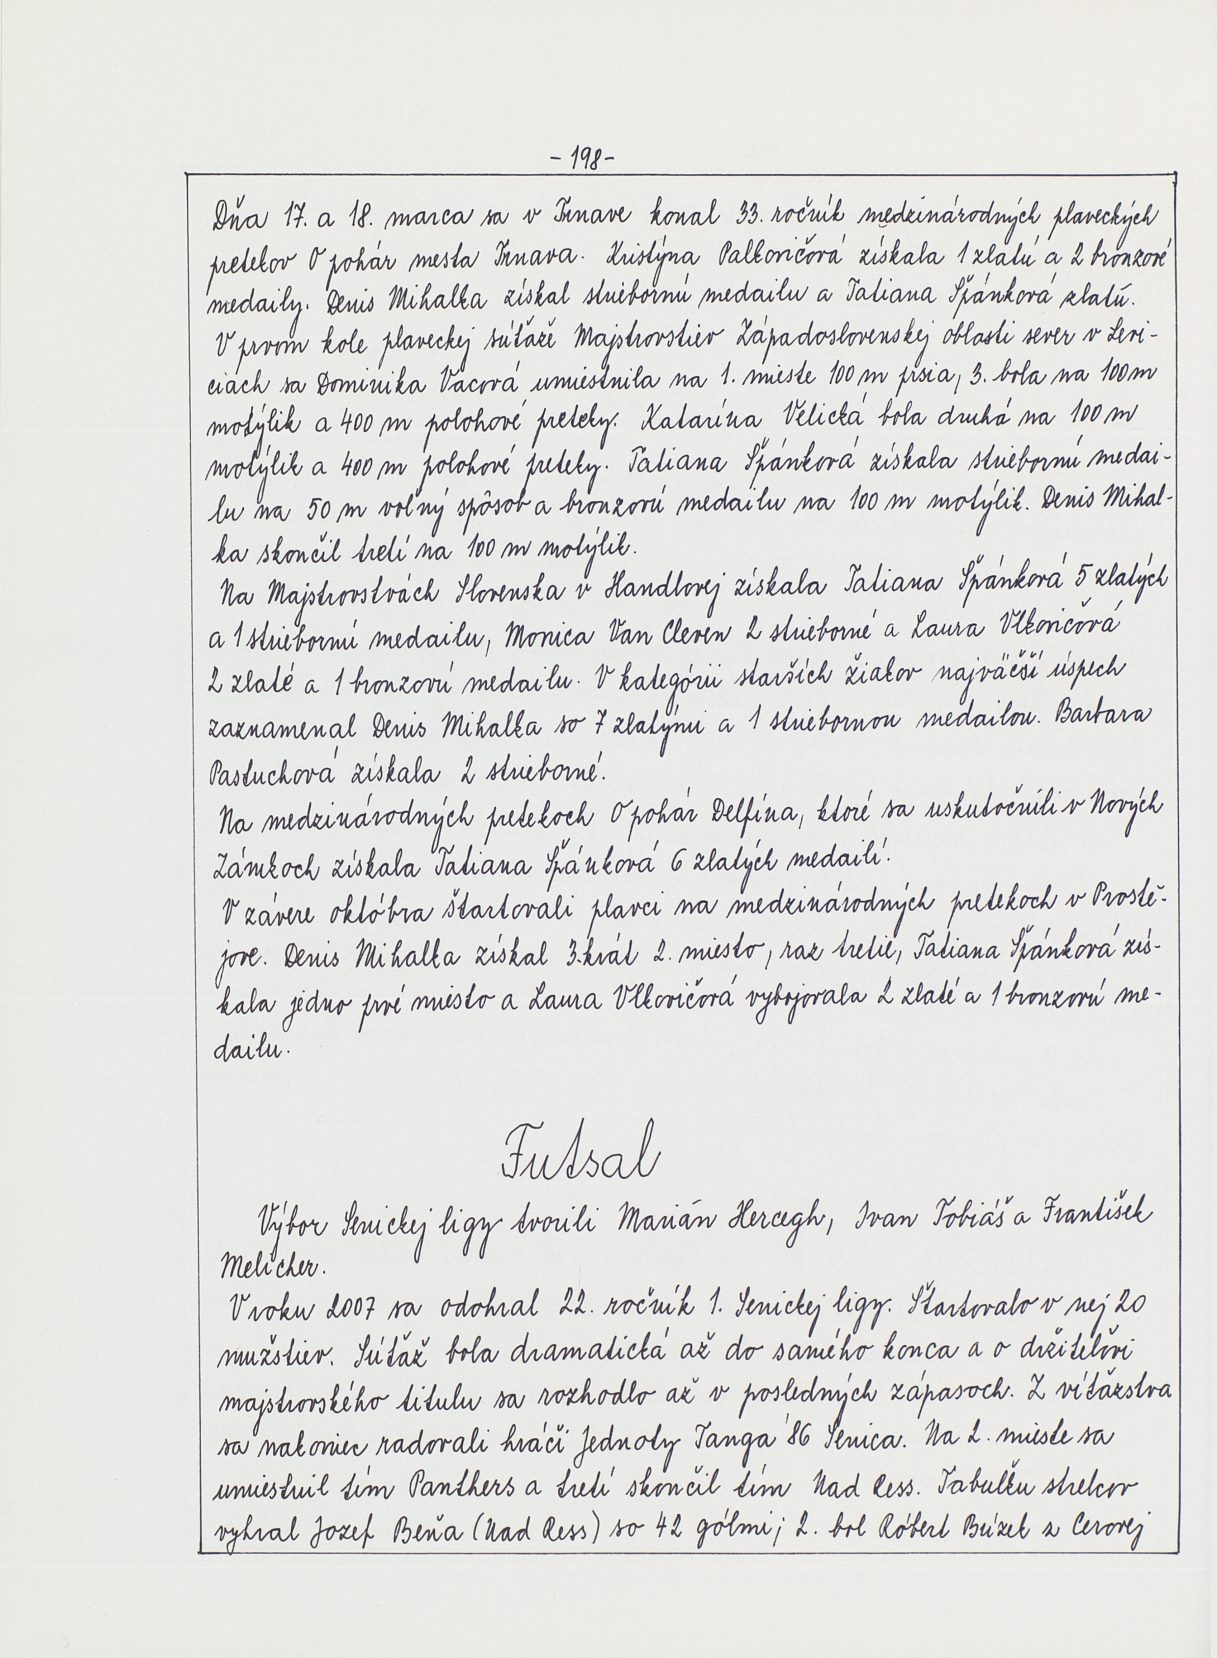 - 198 -
Dňa 17. a 18. marca sa v Trnave konal 33. ročník medzinárodných plaveckých
pretekov O pohár mesta Trnava. Kristýna Palkovičová získala 1 zlatú a 2 bronzové
medaily. Denis Mihalka získal striebornú medailu a Tatiana Špánková zlatú.
V prvom kole plaveckej súťaže Majstrovstiev Západoslovenskej oblasti sever v Levi-
ciach sa Dominika Vacová umiestnila na 1. mieste 100 m prsia, 3. bola na 100 m
motýlik a 400 m polohové preteky. Katarína Velická bola druhá na 100 m
motýlik a 400 m polohové preteky. Tatiana Špánková získala striebornú medai-
lu na 50 m voľný spôsob a bronzovú medailu na 100 m motýlik. Denis Mihal-
ka skončil tretí na 100 m motýlik.
Na Majstrovstvách Slovenska v Handlovej získala Tatiana Špánková 5 zlatých
a 1 striebornú medailu, Monica Van Cleven 2 strieborné a Laura Vlkovičová
2 zlaté a 1 bronzovú medailu. V kategórii starších žiakov najväčší úspech
zaznamenal Denis Mihalka so 7 zlatými a 1 striebornou medailou. Barbara
Pastuchová získala 2 strieborné.
Na medzinárodných pretekoch O pohár Delfína, ktoré sa uskutočnili v Nových
Zámkoch získala Tatiana Špánková 6 zlatých medailí.
V závere októbra štartovali plavci na medzinárodných pretekoch v Prostě-
jove. Denis Mihalka získal 3.krát 2. miesto, raz tretie, Tatiana Špánková zís-
kala jedno prvé miesto a Laura Vlkovičová vybojovala 2 zlaté a 1 bronzovú me-
dailu.
Futsal
Výbor Senickej ligy tvorili Marián Hercegh, Ivan Tobiáš a František
Melicher.
V roku 2007 sa odohral 22. ročník 1. Senickej ligy. Štartovalo v nej 20
mužstiev. Súťaž bola dramatická až do samého konca a o držiteľovi
majstrovského titulu sa rozhodlo až v posledných zápasoch. Z víťazstva
sa nakoniec radovali hráči Jednoty Tanga '86 Senica. Na 2. mieste sa
umiestnil tím Panthers a tretí skončil tím Nad Ress. Tabuľku strelcov
vyhral Jozef Beňa (Nad Ress) so 42 gólmi; 2. bol Róbert Búzek z Cerovej